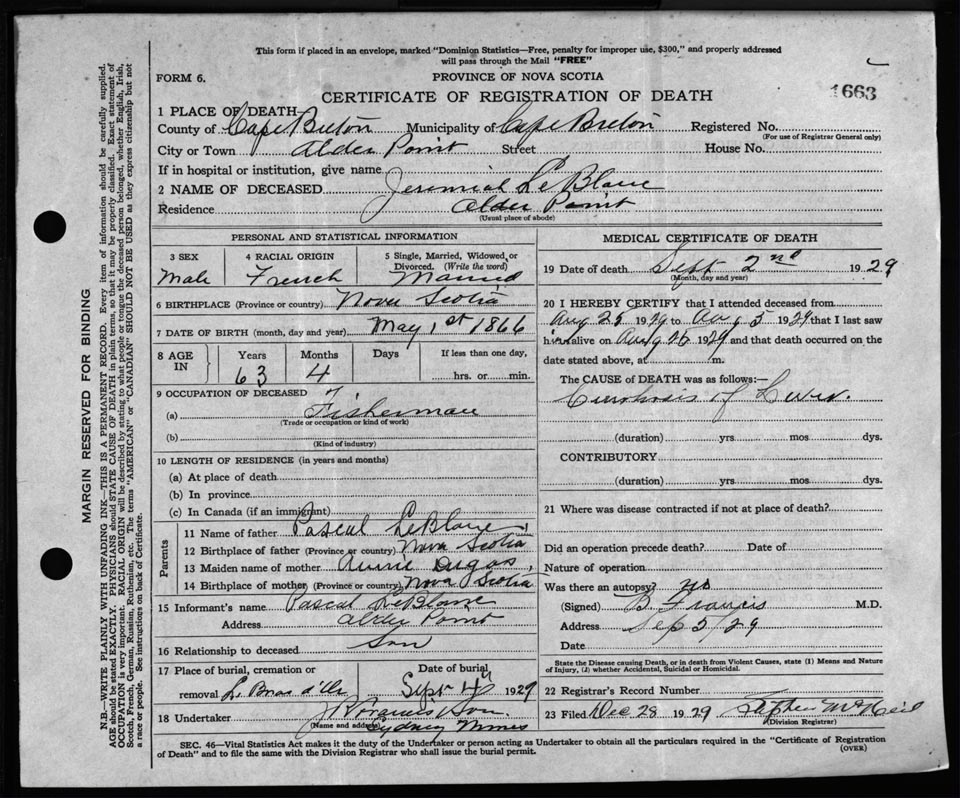 This form if placed in an envelope, marked "Dominion Statistics—Free, penalty for improper use, $300," and properly addressed
will pass through the Mail "FREE"
FORM 6.
PROVINCE OF NOVA SCOTIA
1663
CERTIFICATE OF REGISTRATION OF DEATH
1 PLACE OF DEATH
County of Cape Breton Municipality of Cape Breton Registered No.
(For use of Registrar General only)
City or Town Alder Point Street House No.
If in hospital or institution, give name
2 NAME OF DECEASED Jeremiah LeBlanc
Residence Alder Point
(Usual place of abode)
PERSONAL AND STATISTICAL INFORMATION
3 SEX Male
4 RACIAL ORIGIN French
5 Single, Married, Widowed or Divorced. (Write the word) Married
6 BIRTHPLACE (Province or country) Nova Scotia
7 DATE OF BIRTH (month, day and year) May 1st 1866
8 AGE IN Years 63 Months 4 Days If less than one day, hrs. or min.
9 OCCUPATION OF DECEASED
(a) Fisherman
(Trade or occupation or kind of work)
(b)
(Kind of industry)
10 LENGTH OF RESIDENCE (in years and months)
(a) At place of death
(b) In province
(c) In Canada (if an immigrant)
Parents
11 Name of father Pascal LeBlanc
12 Birthplace of father (Province or country) Nova Scotia
13 Maiden name of mother Annie Dugas
14 Birthplace of mother (Province or country) Nova Scotia
15 Informant's name Pascal LeBlanc
Address Alder Point
16 Relationship to deceased Son
17 Place of burial, cremation or removal L. Bras d'Or
Date of burial Sept 4th 1929
18 Undertaker Son.
(Name and address) Sydney Mines
MEDICAL CERTIFICATE OF DEATH
19 Date of death Sept 2nd 1929
(Month, day and year)
20 I HEREBY CERTIFY that I attended deceased from
Aug 25 1929 to Aug 5 1929 that I last saw
him alive on Aug 26 1929 and that death occurred on the
date stated above, at m.
The CAUSE of DEATH was as follows:—
Cirrhosis of Liver.
(duration) yrs. mos dys.
CONTRIBUTORY
(duration) yrs. mos. dys.
21 Where was disease contracted if not at place of death?
Did an operation precede death? Date of
Nature of operation
Was there an autopsy? no
(Signed) B. Francis M.D.
Address Sep 5/29
Date
State the Disease causing Death, or in death from Violent Causes, state (1) Means and Nature
of Injury, (2) whether Accidental, Suicidal or Homicidal.
22 Registrar's Record Number
23 Filed Dec 28 1929 Stephen McNeil
(Division Registrar)
SEC. 46—Vital Statistics Act makes it the duty of the Undertaker or person acting as Undertaker to obtain all the particulars required in the "Certificate of Registration
of Death" and to file the same with the Division Registrar who shall issue the burial permit.
(OVER)
MARGIN RESERVED FOR BINDING
N.B.—WRITE PLAINLY WITH UNFADING INK—THIS IS A PERMANENT RECORD. Every item of information should be carefully supplied.
AGE should be stated EXACTLY. PHYSICIANS should STATE CAUSE OF DEATH in plain terms, so that it may be properly classified. Exact statement of
OCCUPATION is very important. RACIAL ORIGIN will be described by stating to what people or tongue the deceased person belonged, whether English, Irish,
Scotch, French, German, Russian, Ruthenian, etc. The terms "AMERICAN" or "CANADIAN" SHOULD NOT BE USED as they express citizenship but not
a race or people. See instructions on back of Certificate.